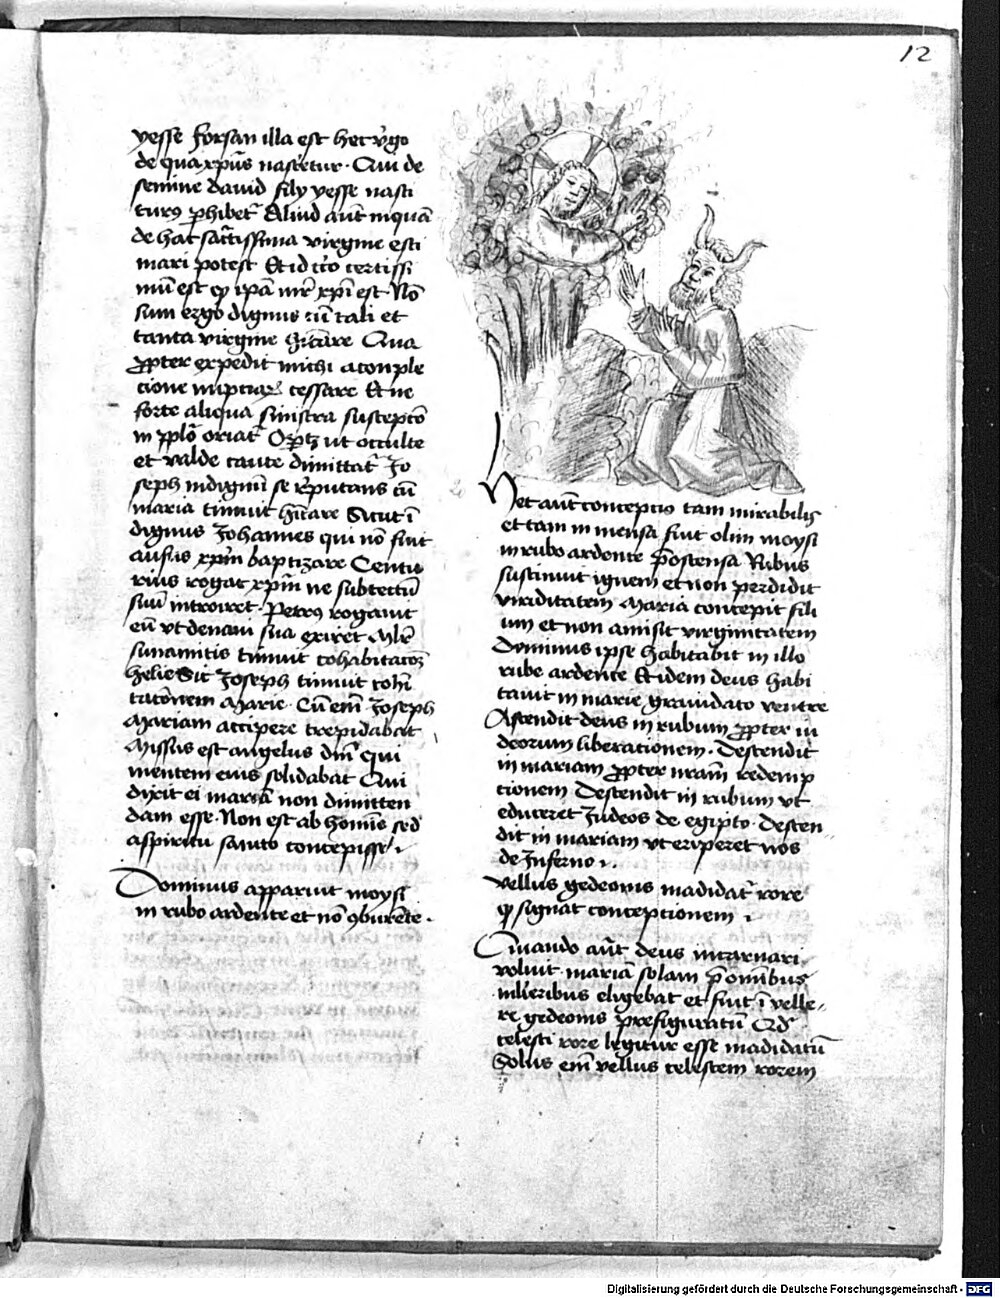 12
yesse forsan illa est hec v̕go
de qua xpūs nascetur · Qui de
semine david fily yesse nasci
turꝫ ꝑhibet᷑ Aliud aūt niquā
de hac sāctissima virgine esti
mari potest Et id cͦco certissi
mū est ꝙ ipā mr̄ xp̄i est · Nō
sum ergo dignus cū tali et
tanta virgine hītare Qua
ꝓpter expedit michi a comple
cione nuptiaꝝ cessare Et ne
forte aliqua sinistra suscepcō
in ꝓplō oriat᷑ Oportꝫ ut occulte
et valde caute dimittat᷑ Jo
seph indignū se reputans cū
maria timuit hītare Sicut ī
dignus Johannes qui nō fuit
ausus xp̄m baptizare Centu
rius rogat xp̄m ne sub tectū
suū introiret · Petrus rogavit
eū vt de navi sua exiret Mulr̄
sunamitis timuit cohabitacōꝫ
helie Sic Joseph timuit cohī
tacōnem Marie · Cū em̄ Joseph
Mariam accipere trepidabat
Missus est angelus dm̄ qui
mentem eius solidabat Qui
dixit ei mariā non dimitten
dam esse · Non est ab homīe sed
a spiritu sancto concepisse ·
Dominus apparuit moysi
in rubo ardente et nō ꝯburēte ·
Hec aūt concepcio tam mirabilis
et tam in mensa fuit olim moysi
in rubo ardente p̄ostensa Rubus
sustinuit ignem et non perdidit
viriditatem Maria concepit fili
um et non amisit virginitatem
Dominus ipse habitabit in illo
rube ardente Et idem deus habi
tavit in marie gravidato ventre
Ascendit deus in rubum ꝓpter iu
deorum liberationem · Descendit
in mariam ꝓpter nr̄am redemp
cionem Descendit in rubum vt
educeret Judeos de egipto · Descen
dit in mariam vt eriperet nos
de Inferno ·
Vellus gedeonis madidat᷑ rore
ꝙ signat conceptionem ·
Quando aūt deus incarnari
voluit · mariā solam p̄ omībus
mlieribus eligebat et fuit ī velle
re gedeonis prefiguratū Qd̄
celesti rore legitur esse madidatū
Solus em̄ vellus celestem rorem
Digitalisierung gefördert durch die Deutsche Forschungsgemeinschaft - DFG